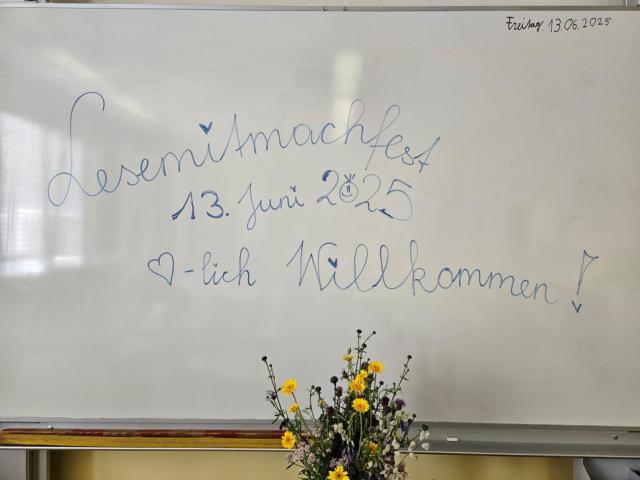 Freitag, 13.06.2025
Lesemitmachfest
13. Juni 2025
♡-lich Willkommen!